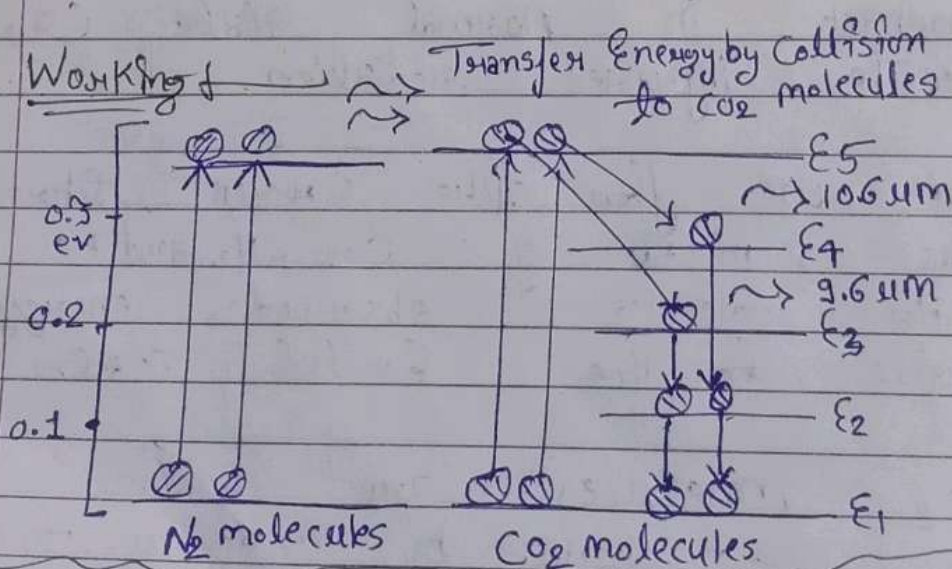 Working :-
Transfer Energy by Collision
to CO2 molecules
E5
10.6 µm
0.3
ev
E4
9.6 µm
0.2
E3
0.1
E2
E1
N2 molecules
CO2 molecules